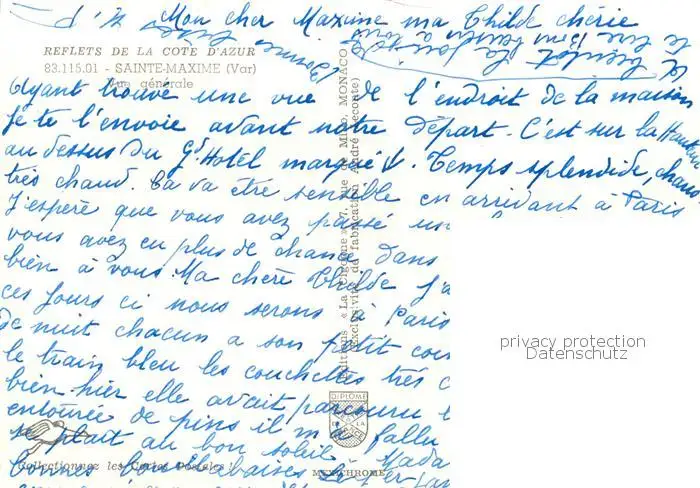 Mon cher Maxime ma Thilde chérie
REFLETS DE LA COTE D'AZUR
83.115.01 - SAINTE-MAXIME (Var)
Vue générale
Ayant trouvé une vue de l'endroit de la maison
je te l'envoie avant notre départ. C'est sur la Hauteur
au dessus du Gd Hotel marqué ↓. Temps splendide, chaud
très chaud. Ca va être sensible en arrivant à Paris
J'espère que vous avez passé
vous avez eu plus de chance dans
bien à vous Ma chère Thilde j'a
ces jours ci nous serons à Paris
de nuit chacun a son petit
le train bleu les couchettes très c
bien hier elle avait parcouru
entourée de pins il m'a fallu
se plait au bon soleil Mada
Collectionnez les Cartes Postales !
bonnes
MEXICHROME
Editions « La Cigogne » 7, rue de Millo, MONACO
(Exclusivité de fabrication André Leconte)
DIPLOME
privacy protection
Datenschutz